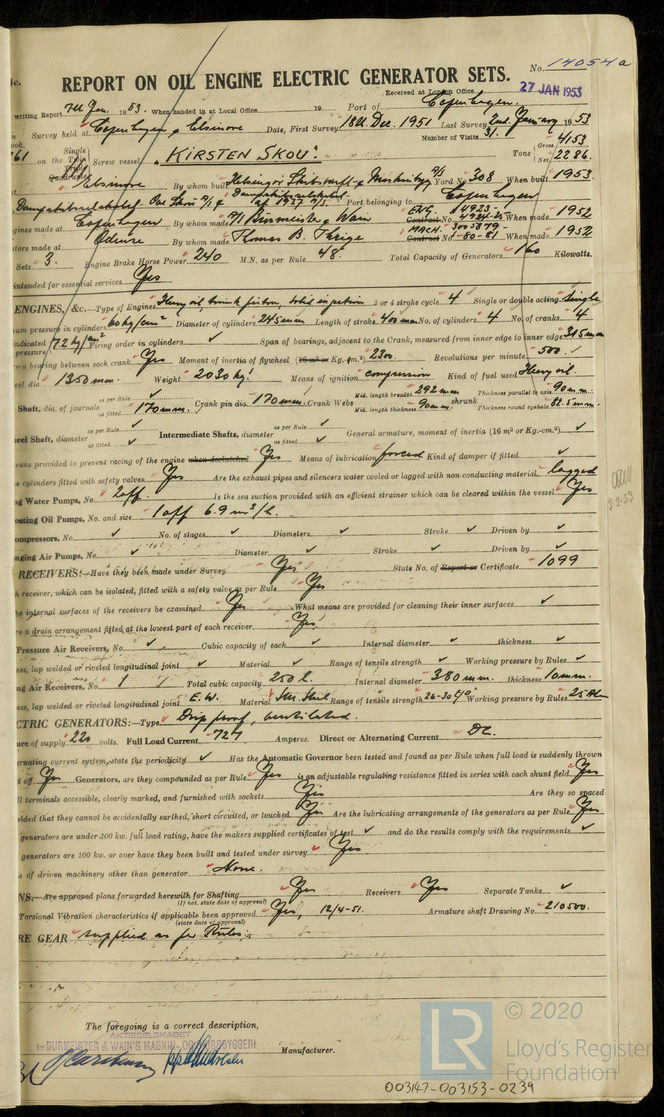 4c.
No. 14054a
REPORT ON OIL ENGINE ELECTRIC GENERATOR SETS.
Received at London Office 27 JAN 1953
writing Report 7th Jan. 1953. When handed in at Local Office 19 Port of Copenhagen.
in Survey held at Copenhagen & Elsinore Date, First Survey 18th Dec. 1951 Last Survey 2nd January 1953
ook. Number of Visits 31.
161 on the Single Screw vessel "KIRSTEN SKOU". Tons Gross 4153 Net 2286.
Elsinore By whom built Helsingør Skibsværft & Maskinbygg. A/S Yard No. 308 When built 1953
Port belonging to Copenhagen
gines made at Copenhagen By whom made A/S Burmeister & Wain Contract No. ENG. 4923- 4924-25 When made 1952
ators made at Odense By whom made Thomas B. Thrige Contract No. MACH. 3005879- -80-81 When made 1952
Sets 3. Engine Brake Horse Power 240 M.N. as per Rule 48. Total Capacity of Generators 160 Kilowatts.
intended for essential services Yes
ENGINES, &c.—Type of Engine Heavy oil, trunk piston, solid injection 2 or 4 stroke cycle 4 Single or double acting Single
um pressure in cylinders 60 kg/cm² Diameter of cylinders 245 mm Length of stroke 400 mm No. of cylinders 4 No. of cranks 4
indicated pressure 7.2 kg/cm² Firing order in cylinders ✓ Span of bearings, adjacent to the Crank, measured from inner edge to inner edge 315 mm
a bearing between each crank Yes Moment of inertia of flywheel (16 m² or Kg.-cm.²) 2300 Revolutions per minute 500. ✓
eel dia 1350 mm. Weight 2030 kg. Means of ignition compression Kind of fuel used Heavy oil.
Shaft, dia. of journals as per Rule ✓ as fitted 170 mm. Crank pin dia. 170 mm. Crank Webs Mid. length breadth 292 mm Mid. length thickness 90 mm. shrunk Thickness parallel to axis 90 mm. Thickness round eyehole 82.5 mm.
eel Shaft, diameter as per Rule ✓ as fitted ✓ Intermediate Shafts, diameter as per Rule ✓ as fitted ✓ General armature, moment of inertia (16 m² or Kg.-cm.²) ✓
ans provided to prevent racing of the engine when declutched Yes Means of lubrication forced Kind of damper if fitted ✓
e cylinders fitted with safety valves Yes Are the exhaust pipes and silencers water cooled or lagged with non-conducting material lagged
ng Water Pumps, No. 2 off. Is the sea suction provided with an efficient strainer which can be cleared within the vessel Yes
cating Oil Pumps, No. and size 1 off 6.9 m³/h.
ompressors, No. ✓ No. of stages ✓ Diameters ✓ Stroke ✓ Driven by ✓
nging Air Pumps, No. ✓ Diameter ✓ Stroke ✓ Driven by ✓
RECEIVERS:—Have they been made under Survey Yes State No. of Report or Certificate 1099
h receiver, which can be isolated, fitted with a safety valve as per Rule Yes
he internal surfaces of the receivers be examined Yes What means are provided for cleaning their inner surfaces ✓
re a drain arrangement fitted at the lowest part of each receiver Yes
Pressure Air Receivers, No. ✓ Cubic capacity of each ✓ Internal diameter ✓ thickness ✓
ess, lap welded or riveted longitudinal joint ✓ Material ✓ Range of tensile strength ✓ Working pressure by Rules ✓
ng Air Receivers, No. 1 ✓ Total cubic capacity 250 l. Internal diameter 380 mm. thickness 10 mm.
ess, lap welded or riveted longitudinal joint E.W. Material Range of tensile strength 26-30 Working pressure by Rules 25
CTRIC GENERATORS:—Type Drip proof, ventilated.
ure of supply 220 volts. Full Load Current 727 Amperes. Direct or Alternating Current DC.
ernating current system, state the periodicity ✓ Has the Automatic Governor been tested and found as per Rule when full load is suddenly thrown
d off Yes Generators, are they compounded as per Rule Yes is an adjustable regulating resistance fitted in series with each shunt field Yes
ll terminals accessible, clearly marked, and furnished with sockets Yes Are they so spaced
elded that they cannot be accidentally earthed, short circuited, or touched Yes Are the lubricating arrangements of the generators as per Rule Yes
generators are under 100 kw. full load rating, have the makers supplied certificates of test ✓ and do the results comply with the requirements ✓
generators are 100 kw. or over have they been built and tested under survey Yes
s of driven machinery other than generator None.
NS.—Are approved plans forwarded herewith for Shafting Yes Receivers Yes Separate Tanks ✓
(If not, state date of approval)
Torsional Vibration characteristics if applicable been approved Yes, 12/4-51. Armature shaft Drawing No. 210500.
(state date of approval)
RE GEAR supplied as per Rules.
The foregoing is a correct description,
AKTIESELSKABET
BURMEISTER & WAIN'S MASKIN- OG SKIBSBYGGERI Manufacturer.
003147-003153-0239
LR © 2020
Lloyd's Register
Foundation